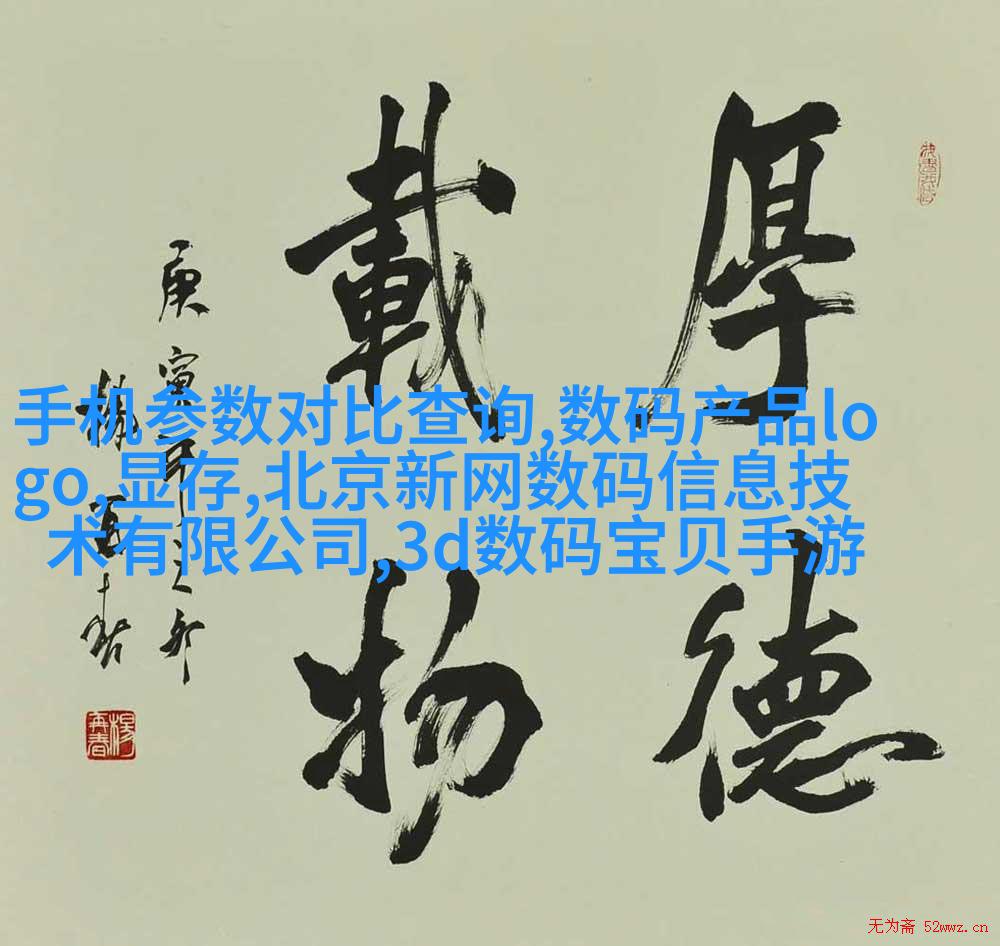 厚德
載物
楊再春
手机参数对比查询,数码产品lo
go,显存,北京新网数码信息技
术有限公司,3d数码宝贝手游
无为斋 52wwz.cn